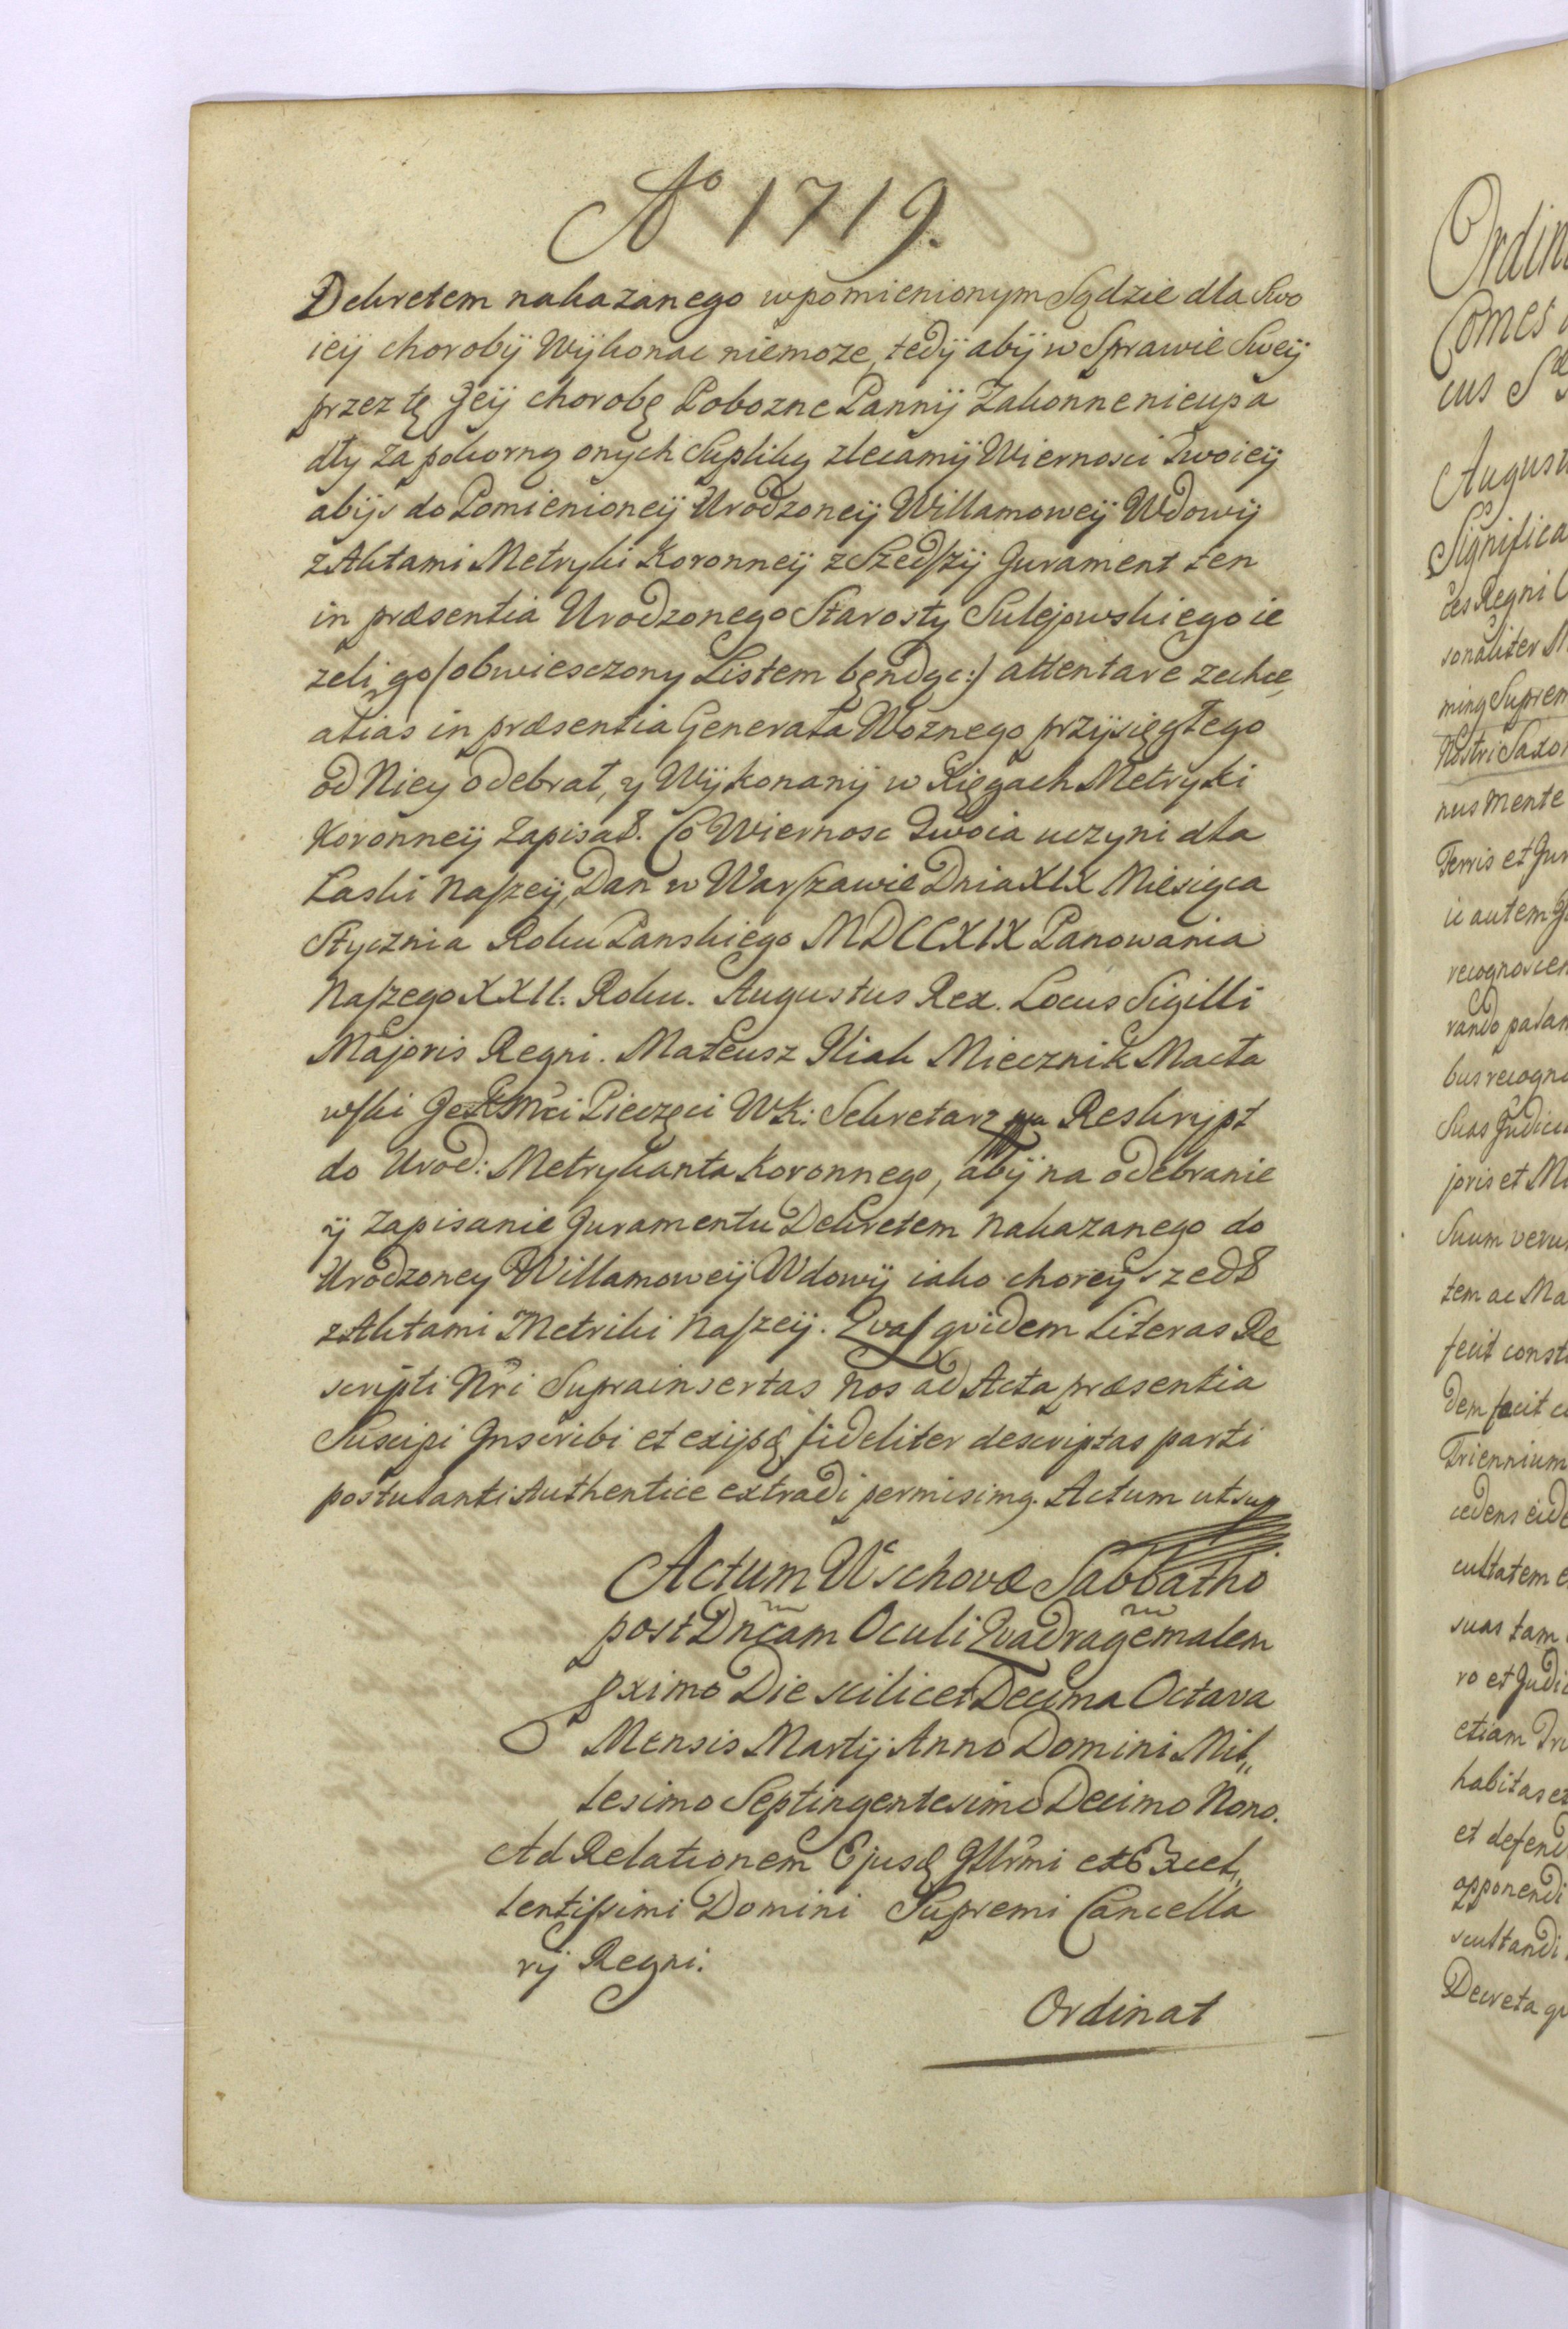 Aº 1719.
Dekretem nakazanego wpomienionym Sądzie dla Swo
ieÿ chorobÿ Wÿkonac niemoze, tedÿ abÿ w Sprawie Sweÿ
przez tę Jeÿ chorobę Pobozne Pannÿ Zakonne nieupa
dły za pokorną onÿch Supliką zlecamÿ Wiernosci Twoieÿ
abÿs do Pomienioneÿ Urodzoneÿ Willamoweÿ Wdowÿ
z Aktami Metryki Koronneÿ zSzedszÿ Jurament ten
in præsentia Urodzonego Starosty Sulejowskiego ie
zeli go (obwiesczony Listem będąc:) attentare zechce,
alias in præsentia Generała Woznego przÿsięgłego
od Niey odebrał, y Wÿkonanÿ w Xięgach Metryki
Koronneÿ Zapisał. Co Wiernosc Twoia uczyni dla
Łaski Naszeÿ, Dan w Warszawie Dnia XIX Miesiąca
Stycznia Roku Panskiego MDCCXIX Panowania
Naszego XXII. Roku. Augustus Rex. Locus Sigilli
Majoris Regni. Mateusz Kliah Miecznik Macła
wski JeKMci Pieczęci WK: Sekretarz Reskrÿpt
do Urod: Metrykanta Koronnego, abÿ na odebranie
ÿ Zapisanie Juramentu Dekretem Nakazanego do
Urodzoney Willamoweÿ Wdowÿ iako choreÿ szedł
z Aktami Metriki Naszeÿ. Qvas qvidem Literas Re
scripti Nri Suprainsertas Nos ad Acta præsentia
Suscipi Inscribi et exijsdꝫ fideliter descriptas parti
postulanti Authentice extradi permisimꝰ. Actum ut sup
Actum Wschovæ Sabbatho
post Dncam Oculi Qvadragemalem
pximo Die scilicet Decima Octava
Mensis Martij Anno Domini Mil„
lesimo Septingentesimo Decimo Nono.
Ad Relationem Ejusdꝫ Illrmi et Excel„
lentissimi Domini Supremi Cancella
rij Regni.
Ordinat
Ordin
Comes
cus S
August
Significa
ces Regni
sonaliter
minꝰ Suprem
Nostri Saxo
nus mente
Terris et Jur
ic autem
recognoscen
rando palam
bus recogno
Suas Judicia
joris et Mi
Suum verum
tem ac Ma
fecit consti
dem facit
Triennium
cedens eide
cultatem e
suas tam
ro et Judic
etiam Tri
habitas et
et defend
opponendi
scultandi
Decreta